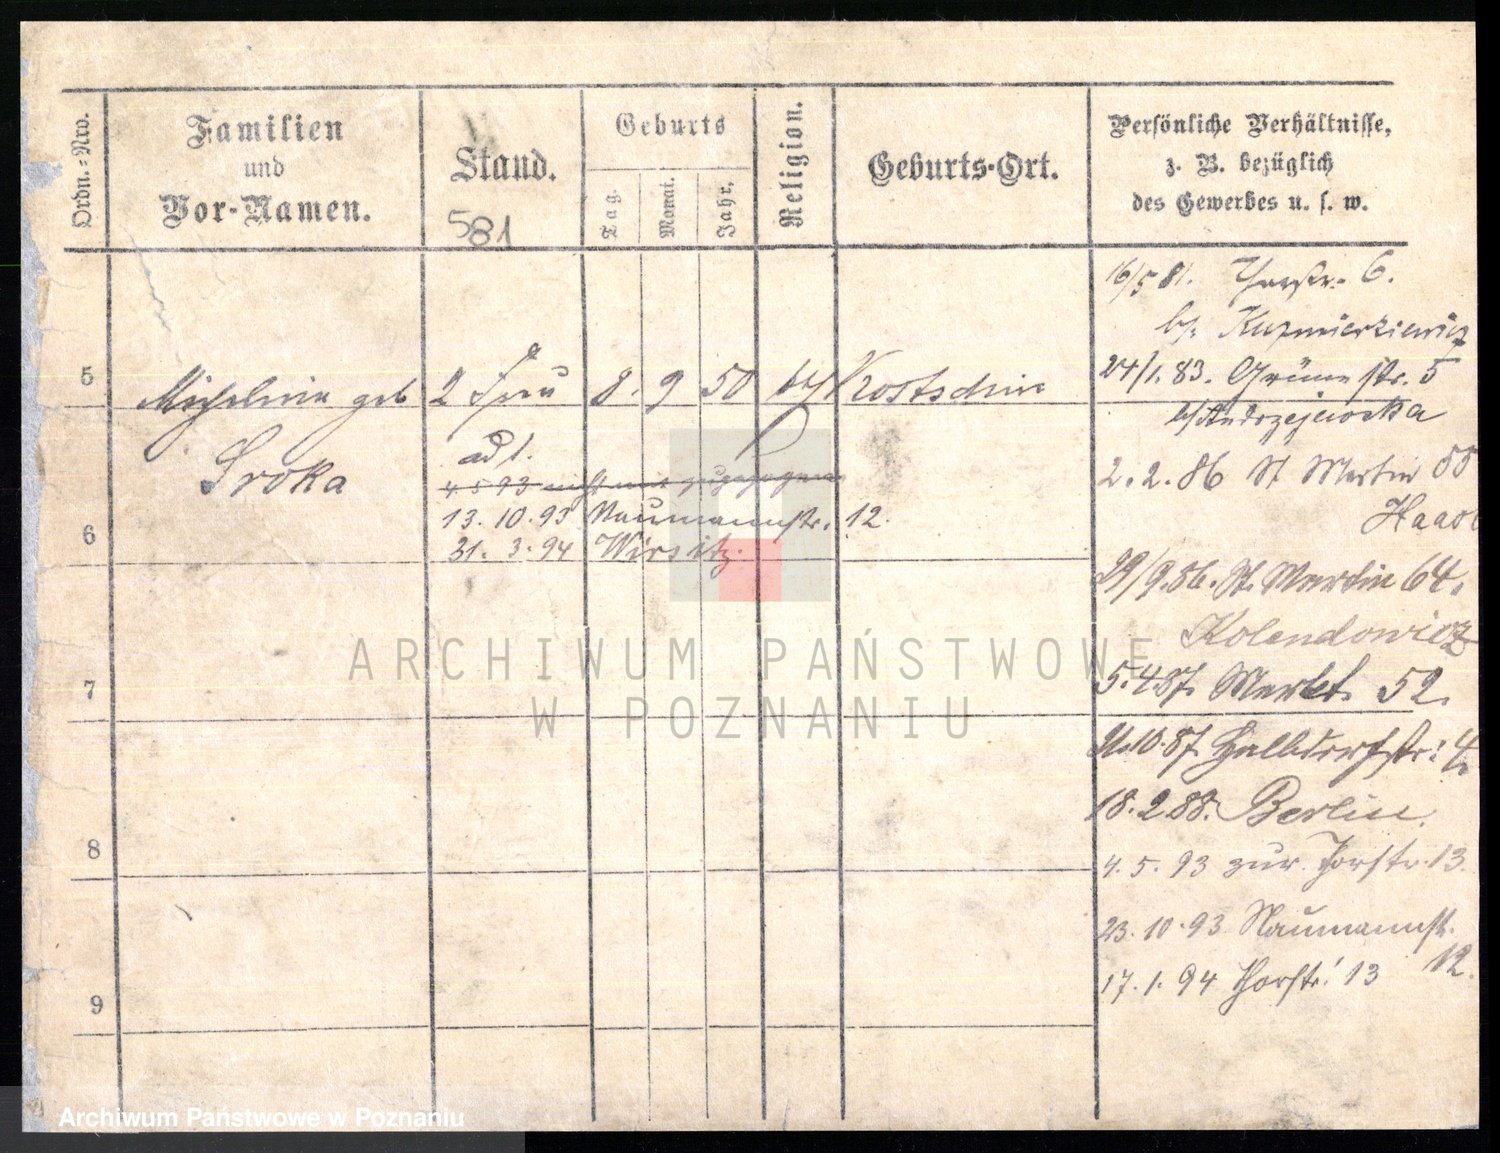 Ordn.-Nro.
Familien
und
Vor-Namen.
Stand.
581
Geburts
Tag.
Monat.
Jahr.
Religion.
Geburts-Ort.
Persönliche Verhältnisse,
z. B. bezüglich
des Gewerbes u. s. w.
16/5 81. Thorstr. 6.
b/. Kazmierkiewicz
5
Michalina geb
2 Frau
8. 9 50
Krotoschin
24/1. 83. Grüne str. 5
b/Andrzejewska
Sroka
ad 1.
4 5 93 nicht mit zugezogen
2. 2. 86 St Martin
Haase
6
13. 10. 93 Naumannstr. 12.
31. 3. 94 Wirsitz.
29/9.86. St. Martin 64.
Kolendowicz
ARCHIWUM PAŃSTWOWE
W POZNANIU
7
5. 4 87. Markt. 52.
10. 87. Halbdorfstr: 4.
8
18. 2 88. Berlin.
4. 5. 93 zur. Torstr. 13.
23. 10. 93 Naumannstr.
12.
9
17. 1. 94 Thorstr. 13
Archiwum Państwowe w Poznaniu